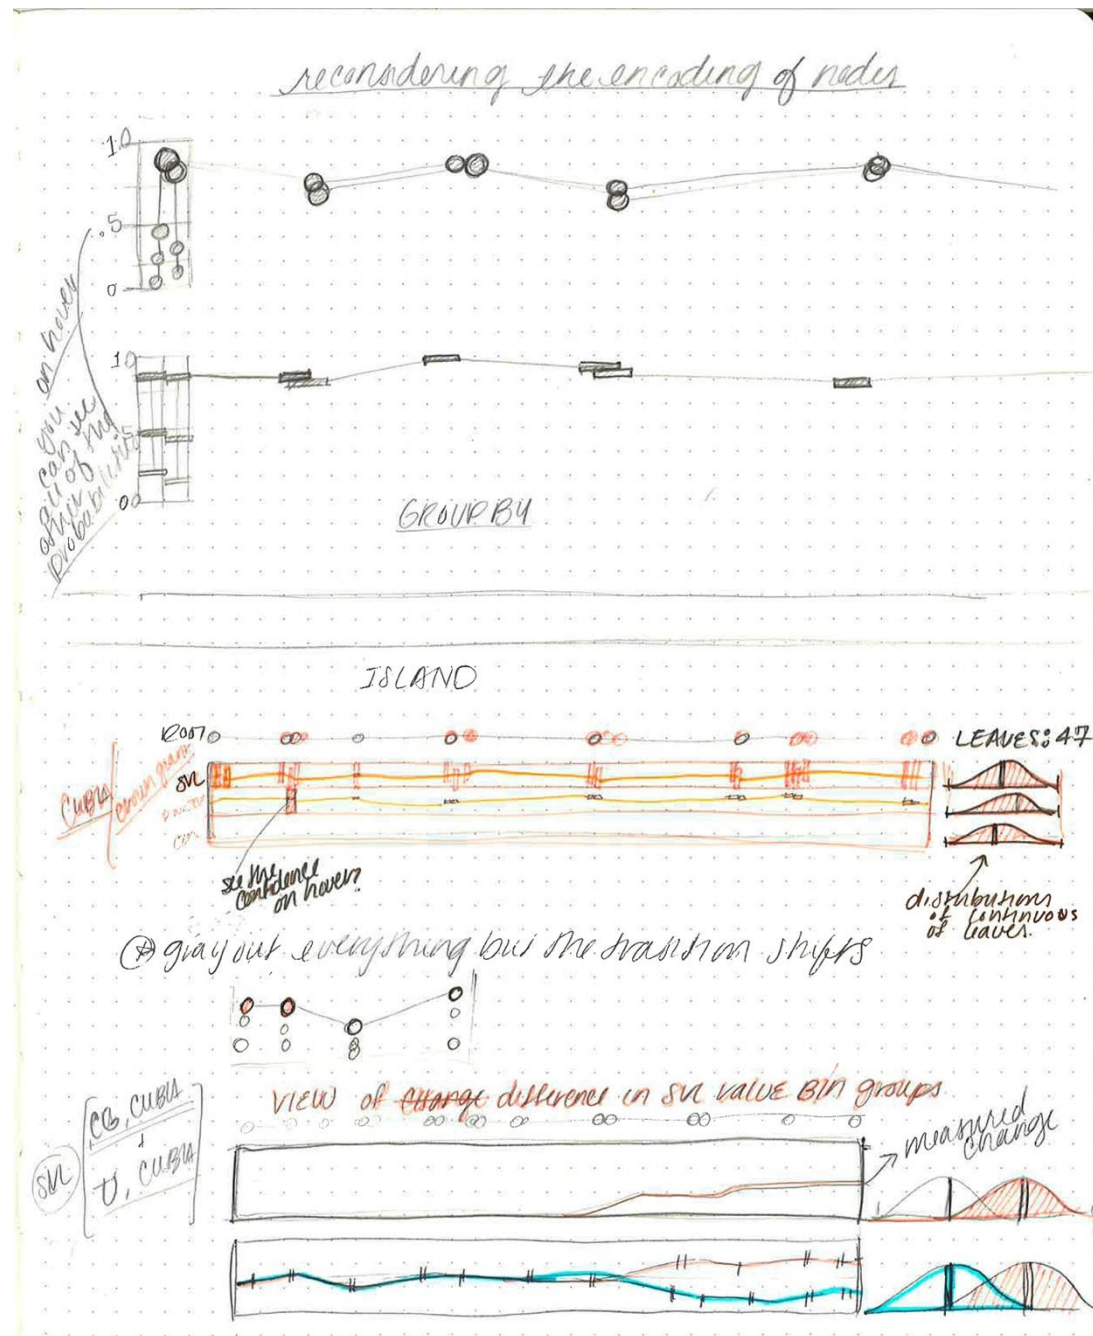 reconsidering the encoding of nodes
1.0
.5
0
on hover
you
can see
all of the
other
probabilities
1.0
.5
00
GROUP BY
ISLAND
ROOT
LEAVES: 47
CUBA/
crown giant
SVL
see the
confidence
on hover?
distributions
of continuous
of leaves.
gray out everything but the transition shifts
VIEW of change difference in SVL value Bin groups
SVL
CG, CUBA
+
T, CUBA
measured
change